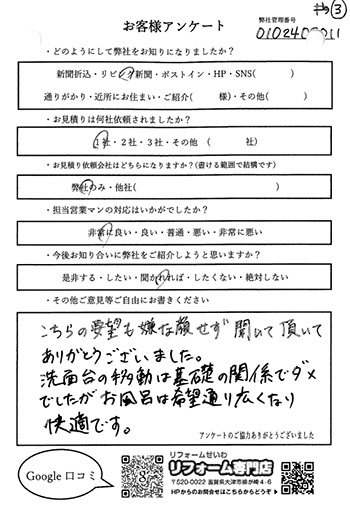 キ③
お客様アンケート
弊社管理番号
・どのようにして弊社をお知りになりましたか？
新聞折込・リビング新聞・ポストイン・HP・SNS(　　　)
通りがかり・近所にお住まい・ご紹介(　　　様)・その他(　　　)
・お見積りは何社依頼されましたか？
1社・2社・3社・その他　(　　　社)
・お見積り依頼会社はどちらになりますか？(書ける範囲で結構です)
弊社のみ・他社(　　　)
・担当営業マンの対応はいかがでしたか？
非常に良い・良い・普通・悪い・非常に悪い
・今後お知り合いに弊社をご紹介しようと思いますか？
是非する・したい・聞かれれば・したくない・絶対しない
・その他ご意見等ご自由にお書きください
こちらの要望も嫌な顔せず聞いて頂いて
ありがとうございました。
洗面台の移動は基礎の関係でダメ
でしたがお風呂は希望通り広くなり
快適です。
アンケートのご協力ありがとうございました
Google口コミ
リフォームせいわ
リフォーム専門店
〒520-0022 滋賀県大津市柳が崎4-6
HPからのお問合せはこちらからどうぞ